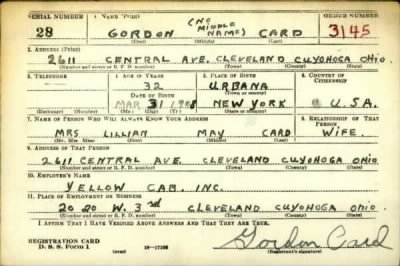 SERIAL NUMBER 1. NAME (Print) ORDER NUMBER
28 GORDON (NO MIDDLE NAME) CARD 3145
(First) (Middle) (Last)
2. ADDRESS (Print)
2611 CENTRAL AVE. CLEVELAND CUYOHOGA OHIO.
(Number and street or R. F. D. number) (Town) (County) (State)
3. TELEPHONE 4. AGE IN YEARS 5. PLACE OF BIRTH 6. COUNTRY OF CITIZENSHIP
32 URBANA
DATE OF BIRTH (Town or county)
MAR 31 1908 NEW YORK U.S.A.
(Exchange) (Number) (Mo.) (Day) (Yr.) (State or country)
7. NAME OF PERSON WHO WILL ALWAYS KNOW YOUR ADDRESS 8. RELATIONSHIP OF THAT PERSON
MRS LILLIAN MAY CARD WIFE.
(Mr., Mrs., Miss) (First) (Middle) (Last)
9. ADDRESS OF THAT PERSON
2611 CENTRAL AVE CLEVELAND CUYOHOGA OHIO
(Number and street or R. F. D. number) (Town) (County) (State)
10. EMPLOYER'S NAME
YELLOW CAB. INC.
11. PLACE OF EMPLOYMENT OR BUSINESS
2020 W. 3rd CLEVELAND CUYOHOGA OHIO.
(Number and street or R. F. D. number) (Town) (County) (State)
I AFFIRM THAT I HAVE VERIFIED ABOVE ANSWERS AND THAT THEY ARE TRUE.
REGISTRATION CARD Gordon Card
D. S. S. Form 1 (over) (Registrant's signature)